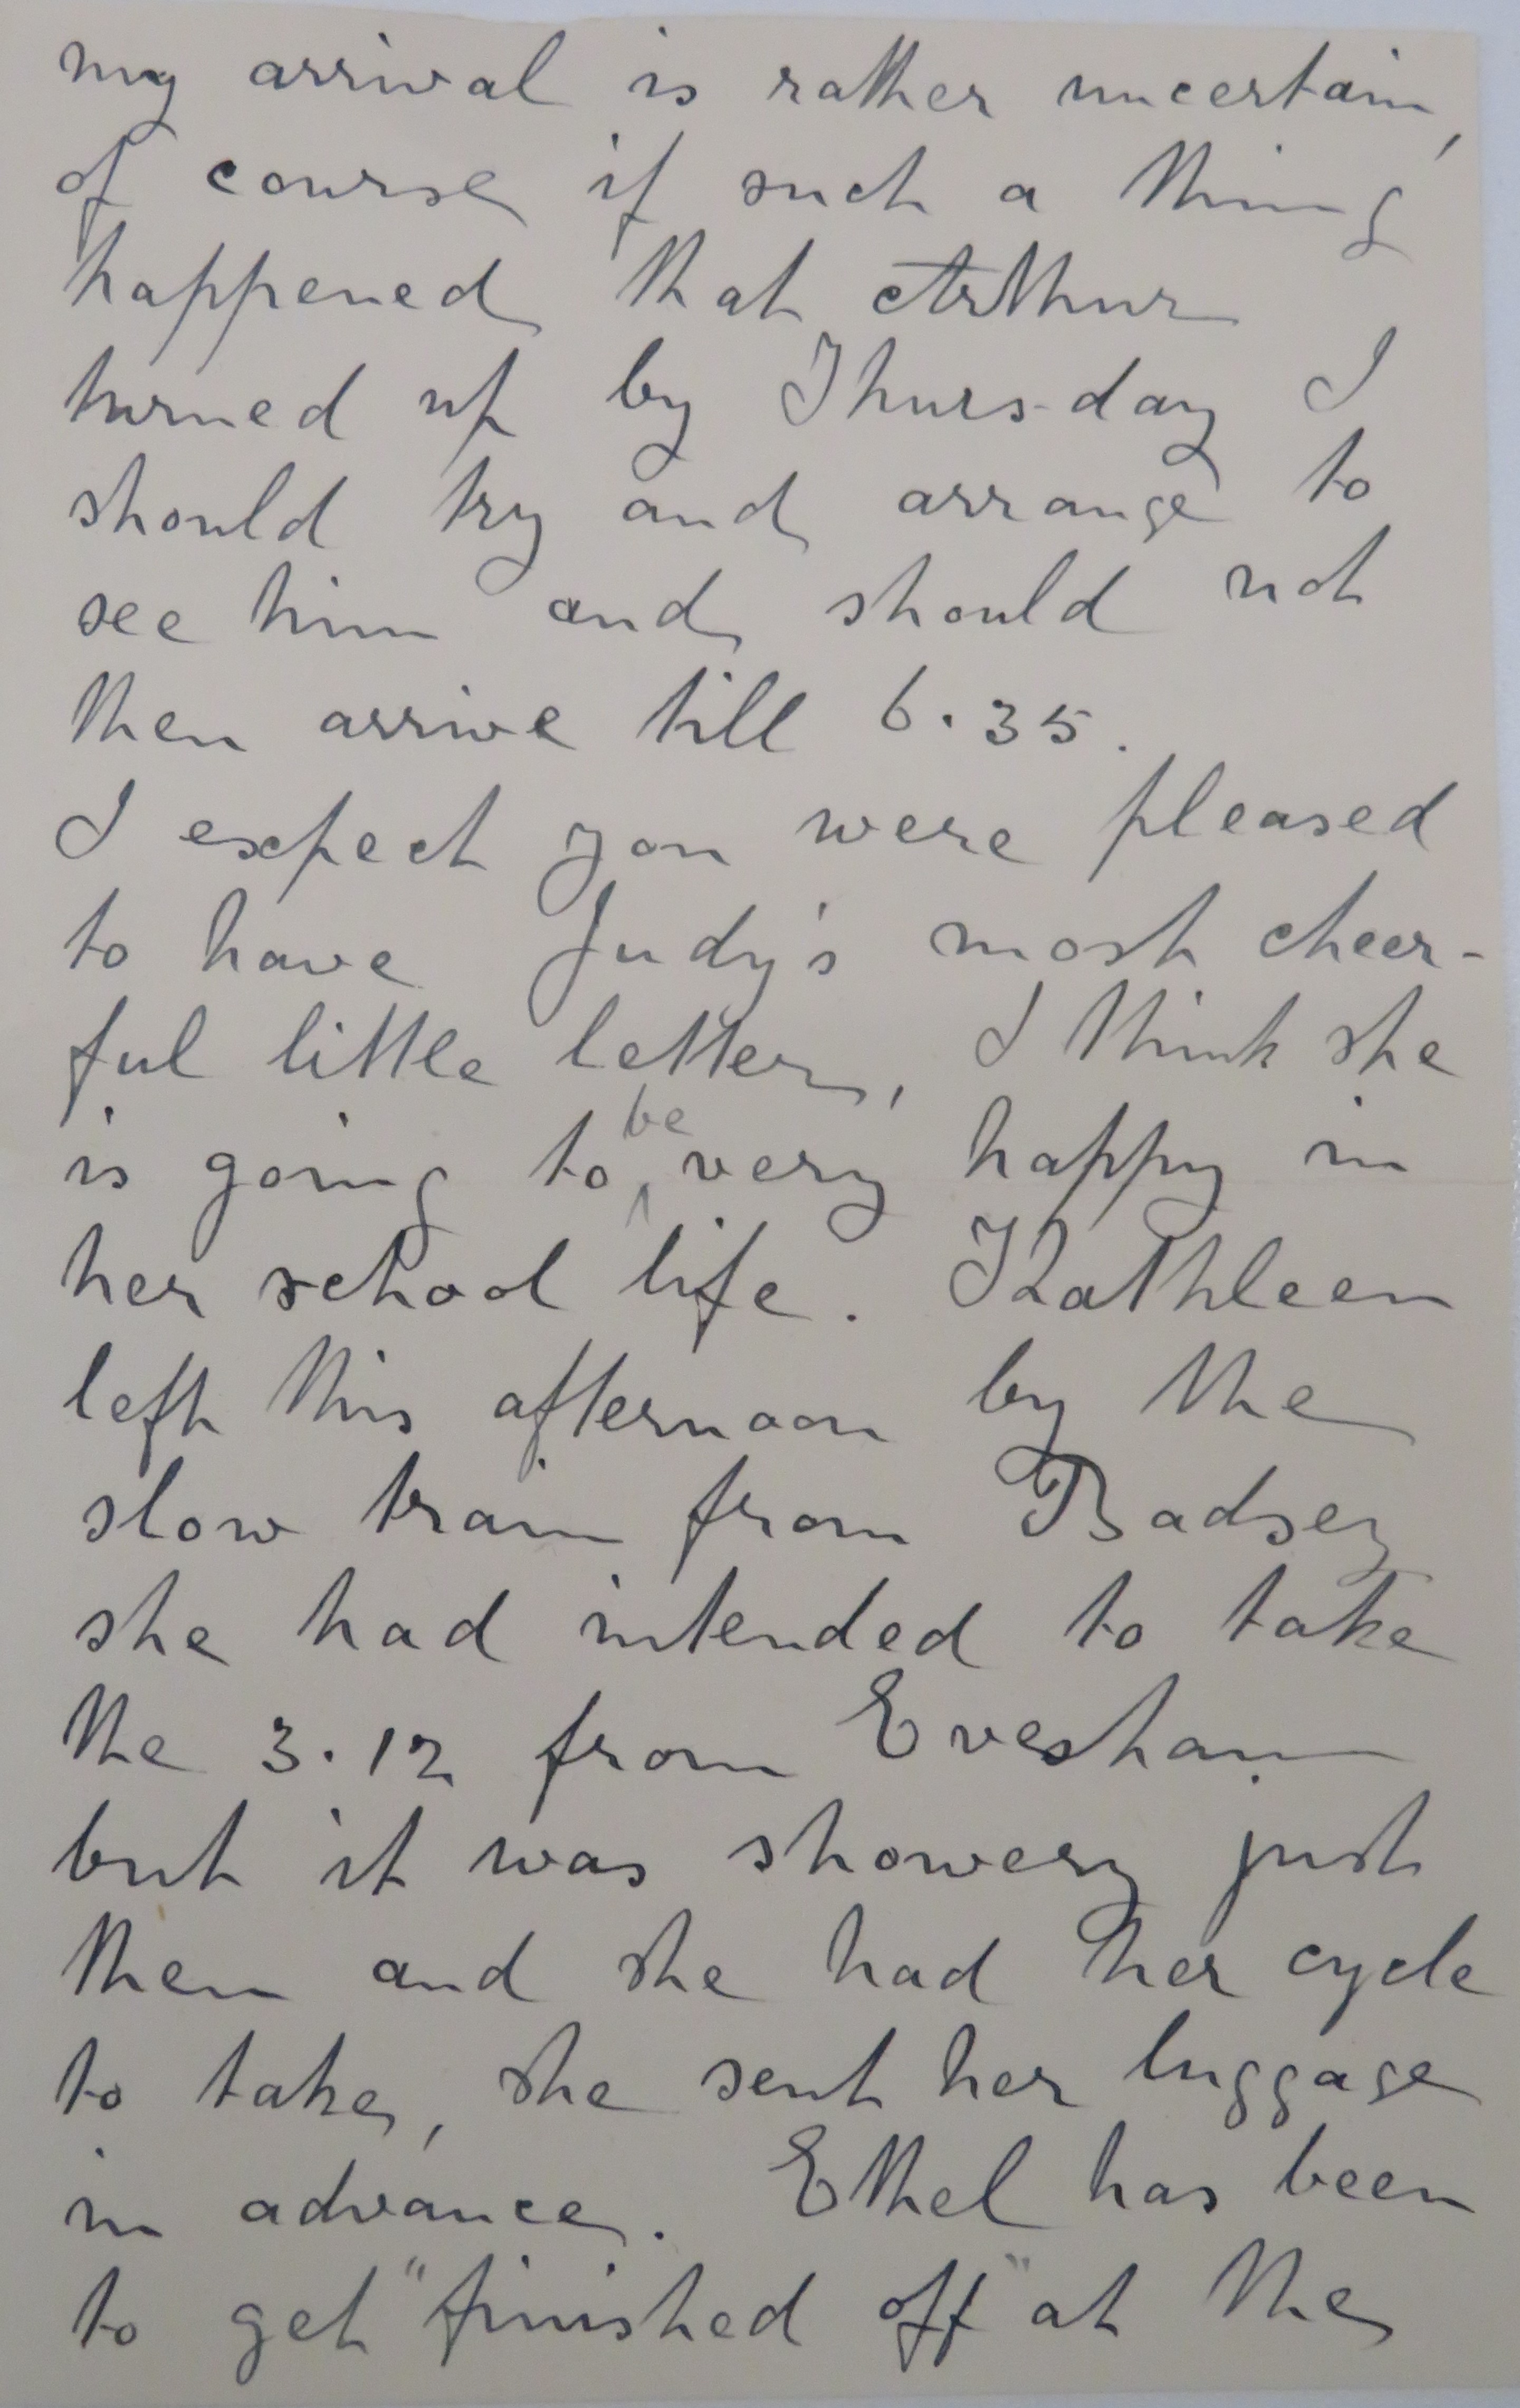 my arrival is rather uncertain,
of course if such a thing
happened that Arthur
turned up by Thursday I
should try and arrange to
see him and should not
then arrive till 6.35.
I expect you were pleased
to have Judy's most cheer-
ful little letter, I think she
is going to be very happy in
her school life. Kathleen
left this afternoon by the
slow train from Badsey
she had intended to take
the 3.12 from Evesham
but it was showery just
then and she had her cycle
to take, she sent her luggage
in advance. Ethel has been
to get "finished off" at the